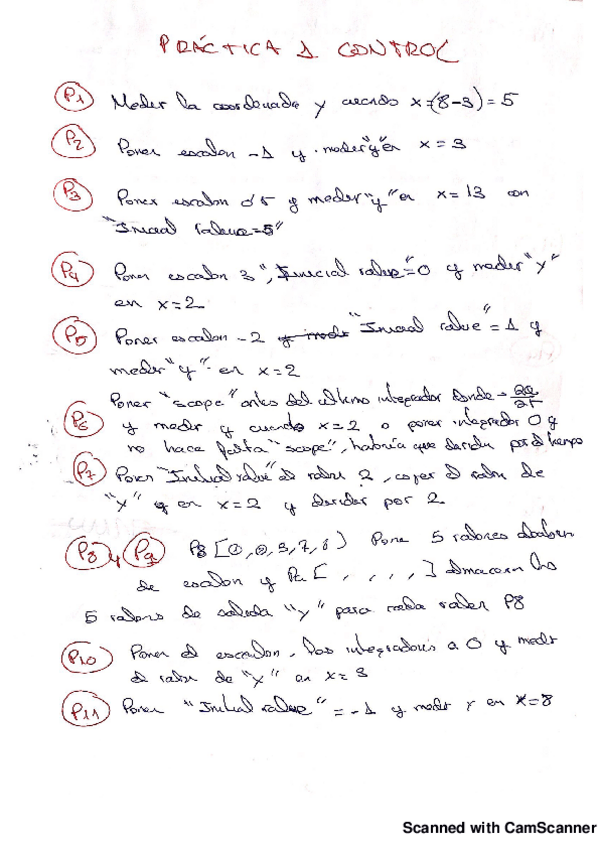 PRÁCTICA 1 CONTROL
P1 Meder la coordenada y cuando x=(8-3)=5
P2 Poner escalon -1 y meder "y" en x=3
P3 Poner escalon y meder "y" en x=13 con
"Inicial value=5"
P4 Poner escalon 3", Inicial value"=0 y meder "y"
en x=2
P5 Poner escalon -2 "Inicial value"=1 y
meder "y" en x=2
Poner "scope" antes del ultimo integrador donde
P6 y medir y cuando x=2 o poner integrador 0 y
no hace falta "scope", habría que dividir por el tiempo
P7 Poner "Initial value" el valor 2, coger el valor de
"y" en x=2 y dividir por 2
P8 y P9 P8 [ ] Pone 5 valores
de escalon y P9 [ , , , , ] almacena los
5 valores de salida "y" para cada valor P8
P10 Poner el escalon, los integradores a 0 y medir
el valor de "y" en x=3
P11 Poner "Initial value"=-1 y medir y en x=8
Scanned with CamScanner